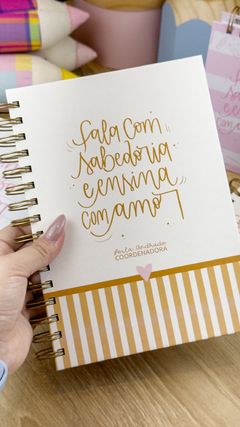 fala com
sabedoria
e ensina
com amor
Paula Andrade
COORDENADORA